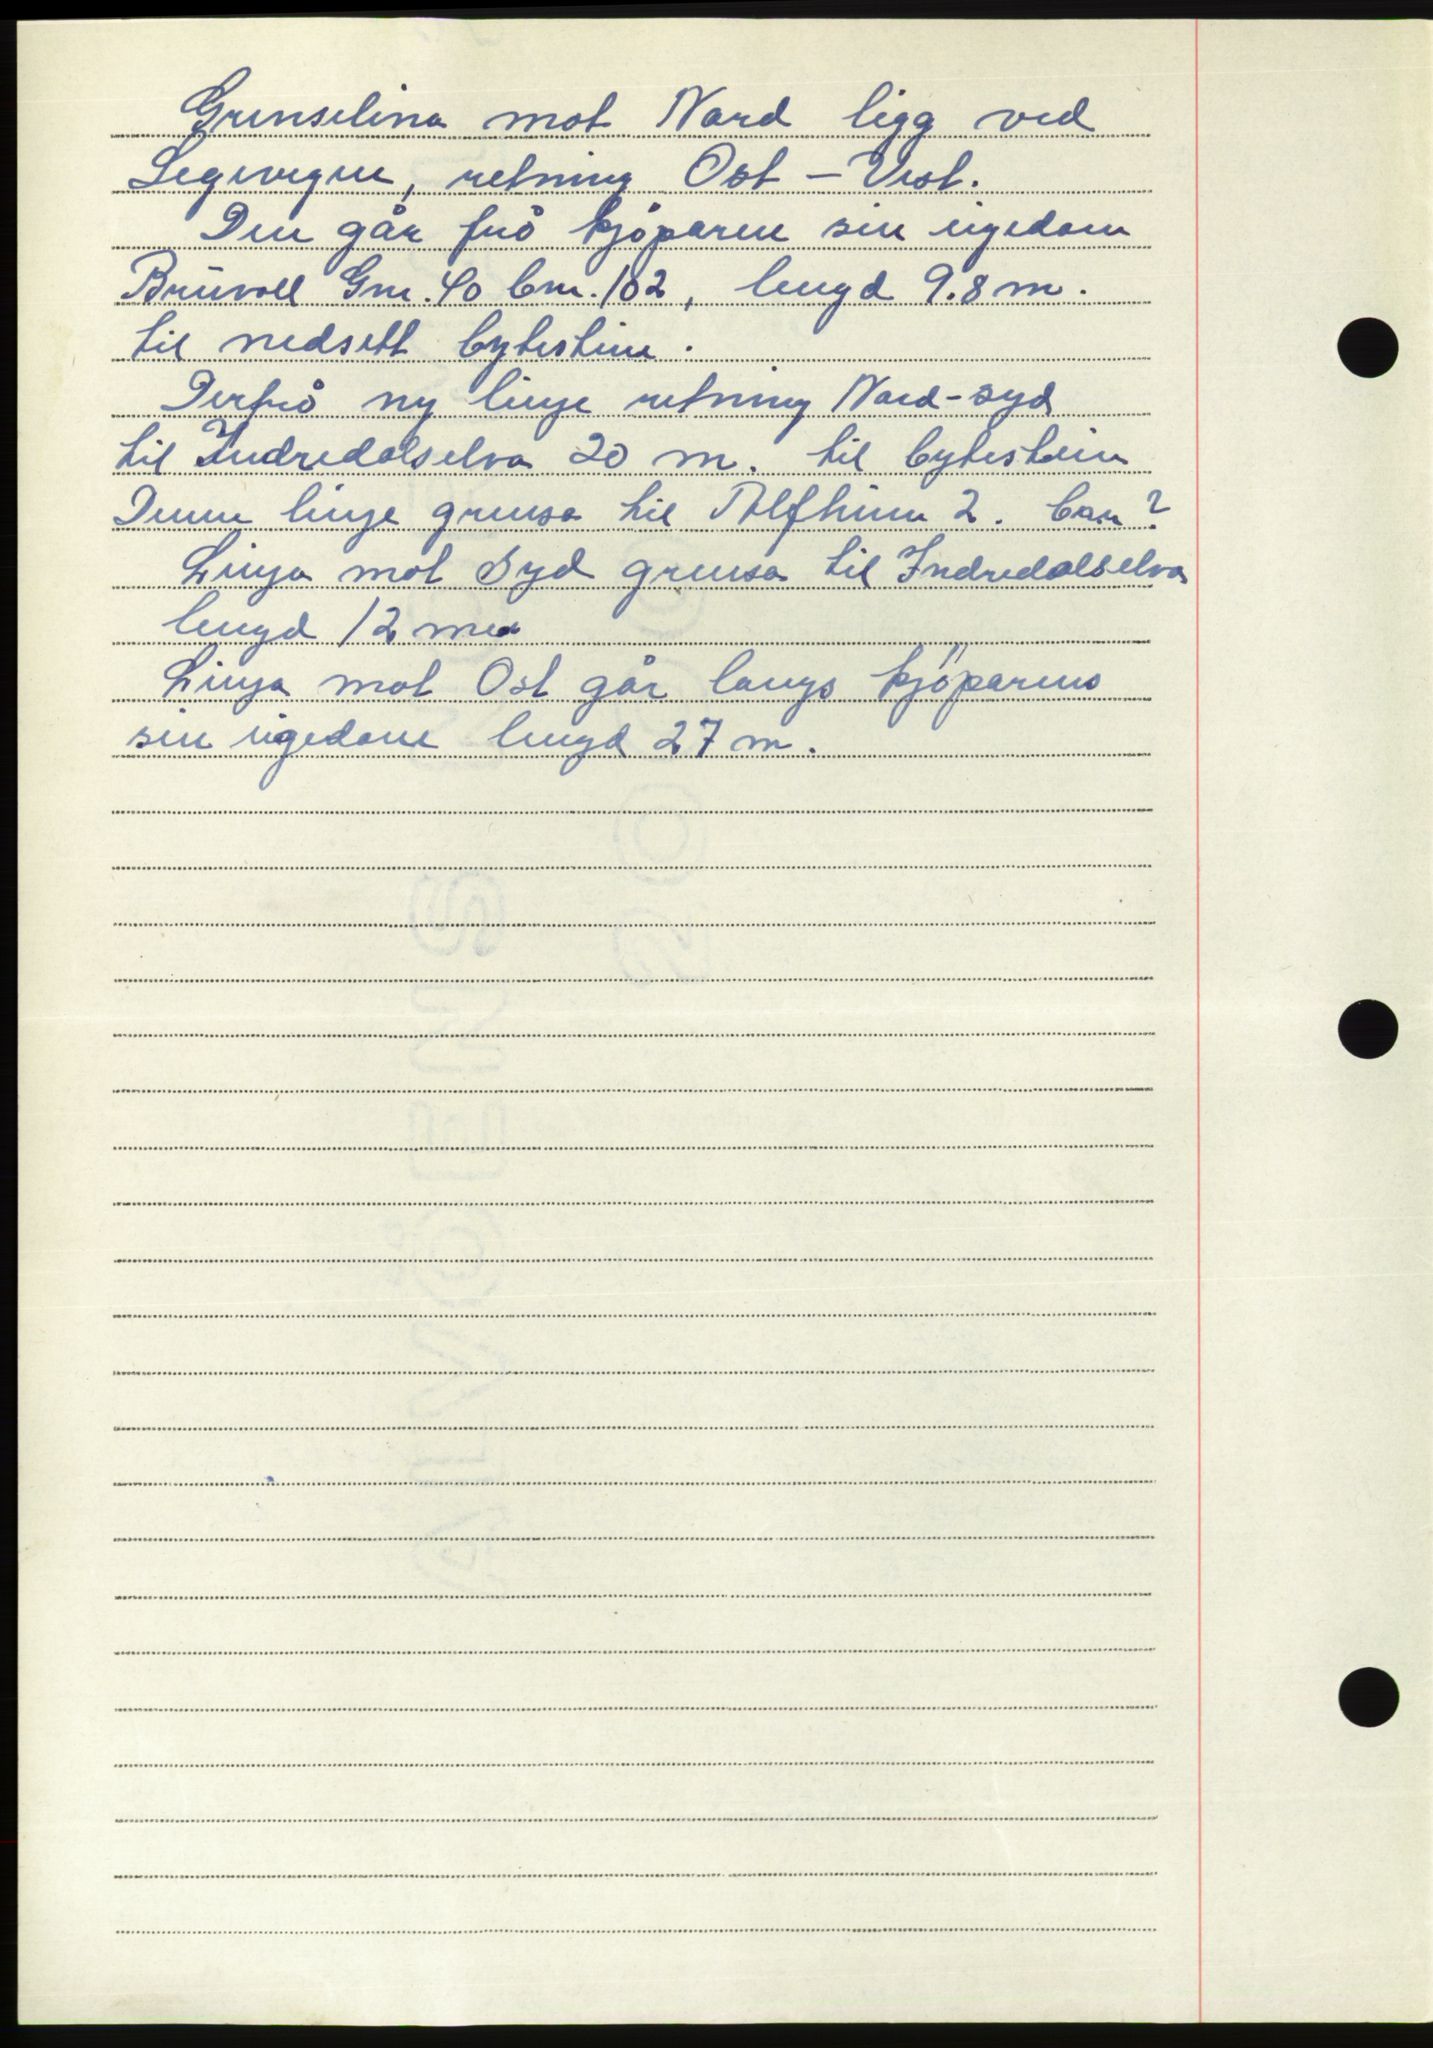 Grenselina mot Nord ligg ved
Legevegen, retning Ost – Vest.
Den går frå kjöparen sin eigedom
Bruvoll Gnr. 40 bnr. 102, lengd 9.8 m.
til nedsett bytestein.
Derfrå ny linje retning Nord-syd
til Indredalselva 20 m. til bytestein
Denne linje grensa til Alfheim 2. bnr?
Linja mot Syd grensa til Indredalselva
lengd 12 m
Linja mot Ost går langs kjöparens
sin eigedom lengd 27 m.